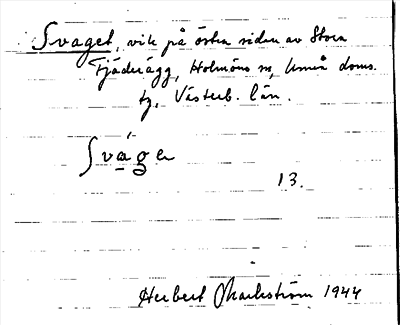 Svaget, vik på östra sidan av Stora
Fjäderägg, Holmöns sn, Umeå doms.
tg, Västerb. län.
Svágɐ
13.
Herbert Markström 1944